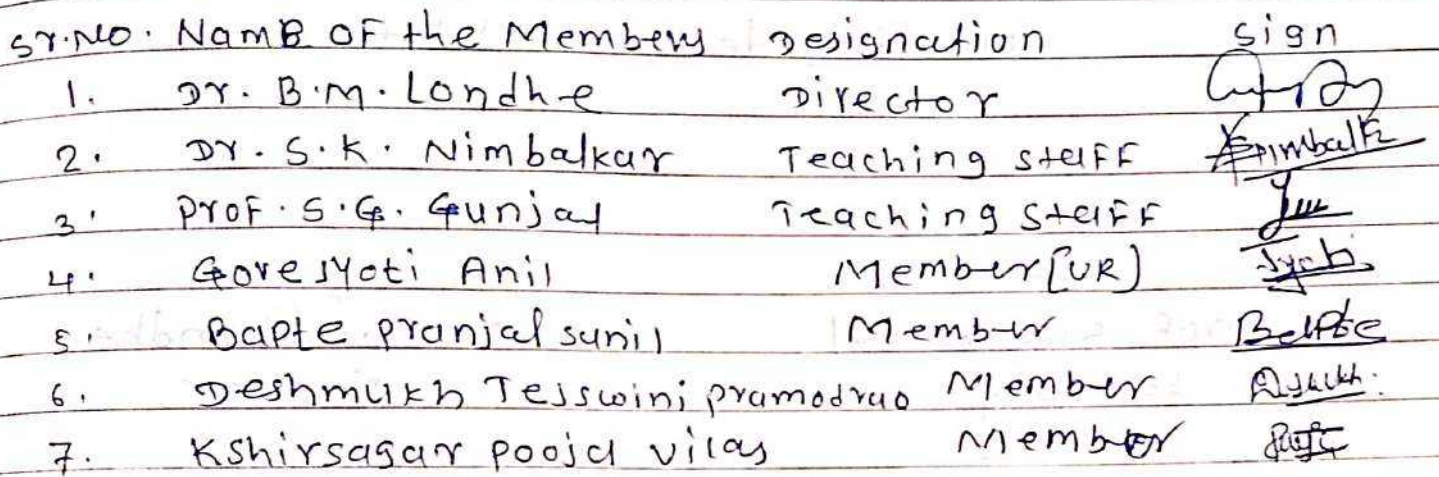 Sr.No. Name OF the Members Designation Sign
1. Dr. B.M. Londhe Director
2. Dr. S.K. Nimbalkar Teaching staff
3. Prof. S.G. Gunjal Teaching Staff
4. Gore Jyoti Anil Member [UR] Jyoti
5. Bapte pranjal sunil Member
6. Deshmukh Tejswini pramodrao Member
7. Kshirsagar pooja vilas Member